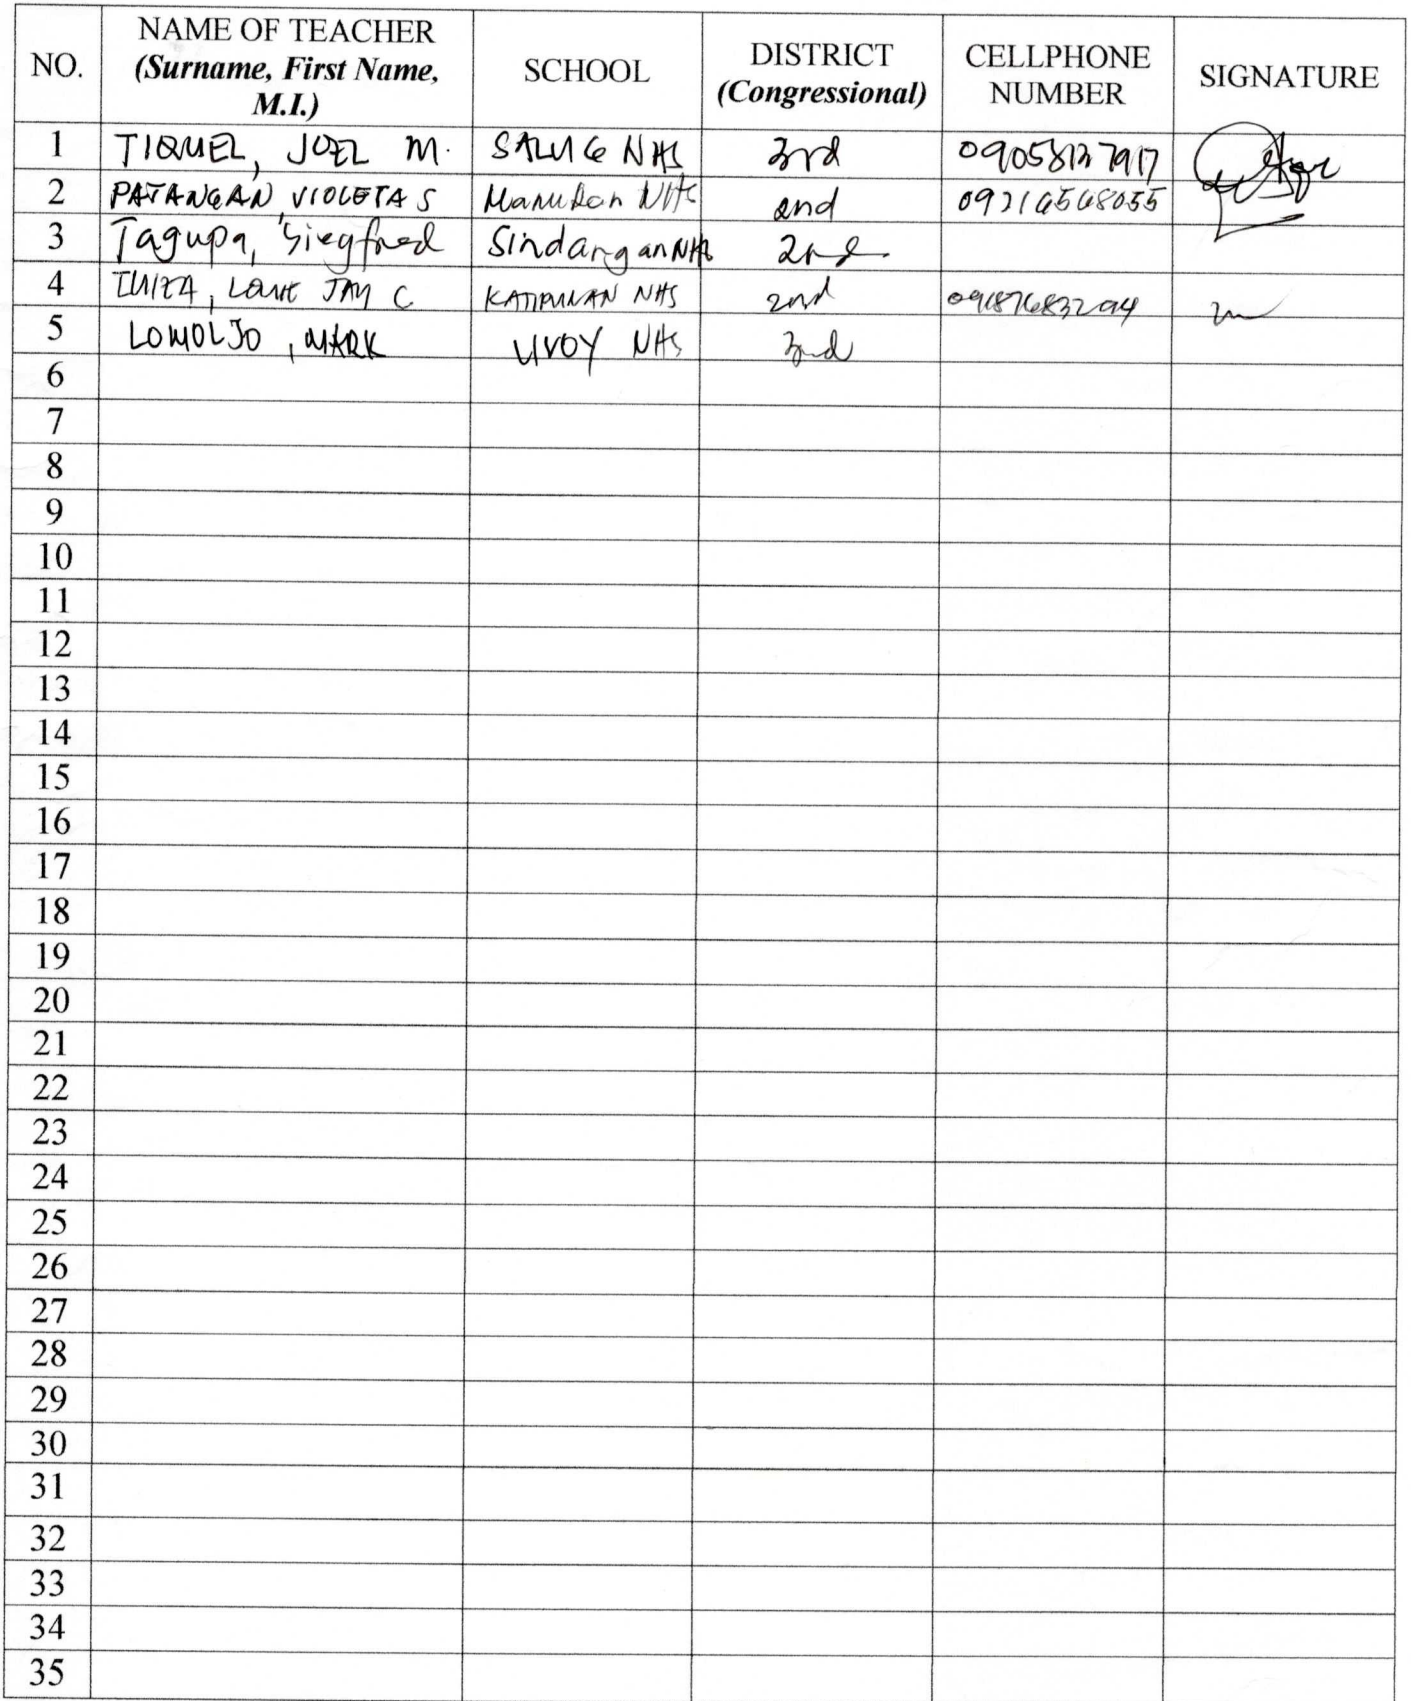 NO. NAME OF TEACHER (Surname, First Name, M.I.) SCHOOL DISTRICT (Congressional) CELLPHONE NUMBER SIGNATURE
1 TIQUEL, JOEL M. SALUG NHS 3rd 09058127917
2 PATANGAN, VIOLETA S Manukan NHS 2nd
3 Tagupa, Siegfred Sindangan NHS 2nd
4 JAY C KATIPUNAN NHS 2nd
5 LOMOLJO, MARK NHS
6
7
8
9
10
11
12
13
14
15
16
17
18
19
20
21
22
23
24
25
26
27
28
29
30
31
32
33
34
35